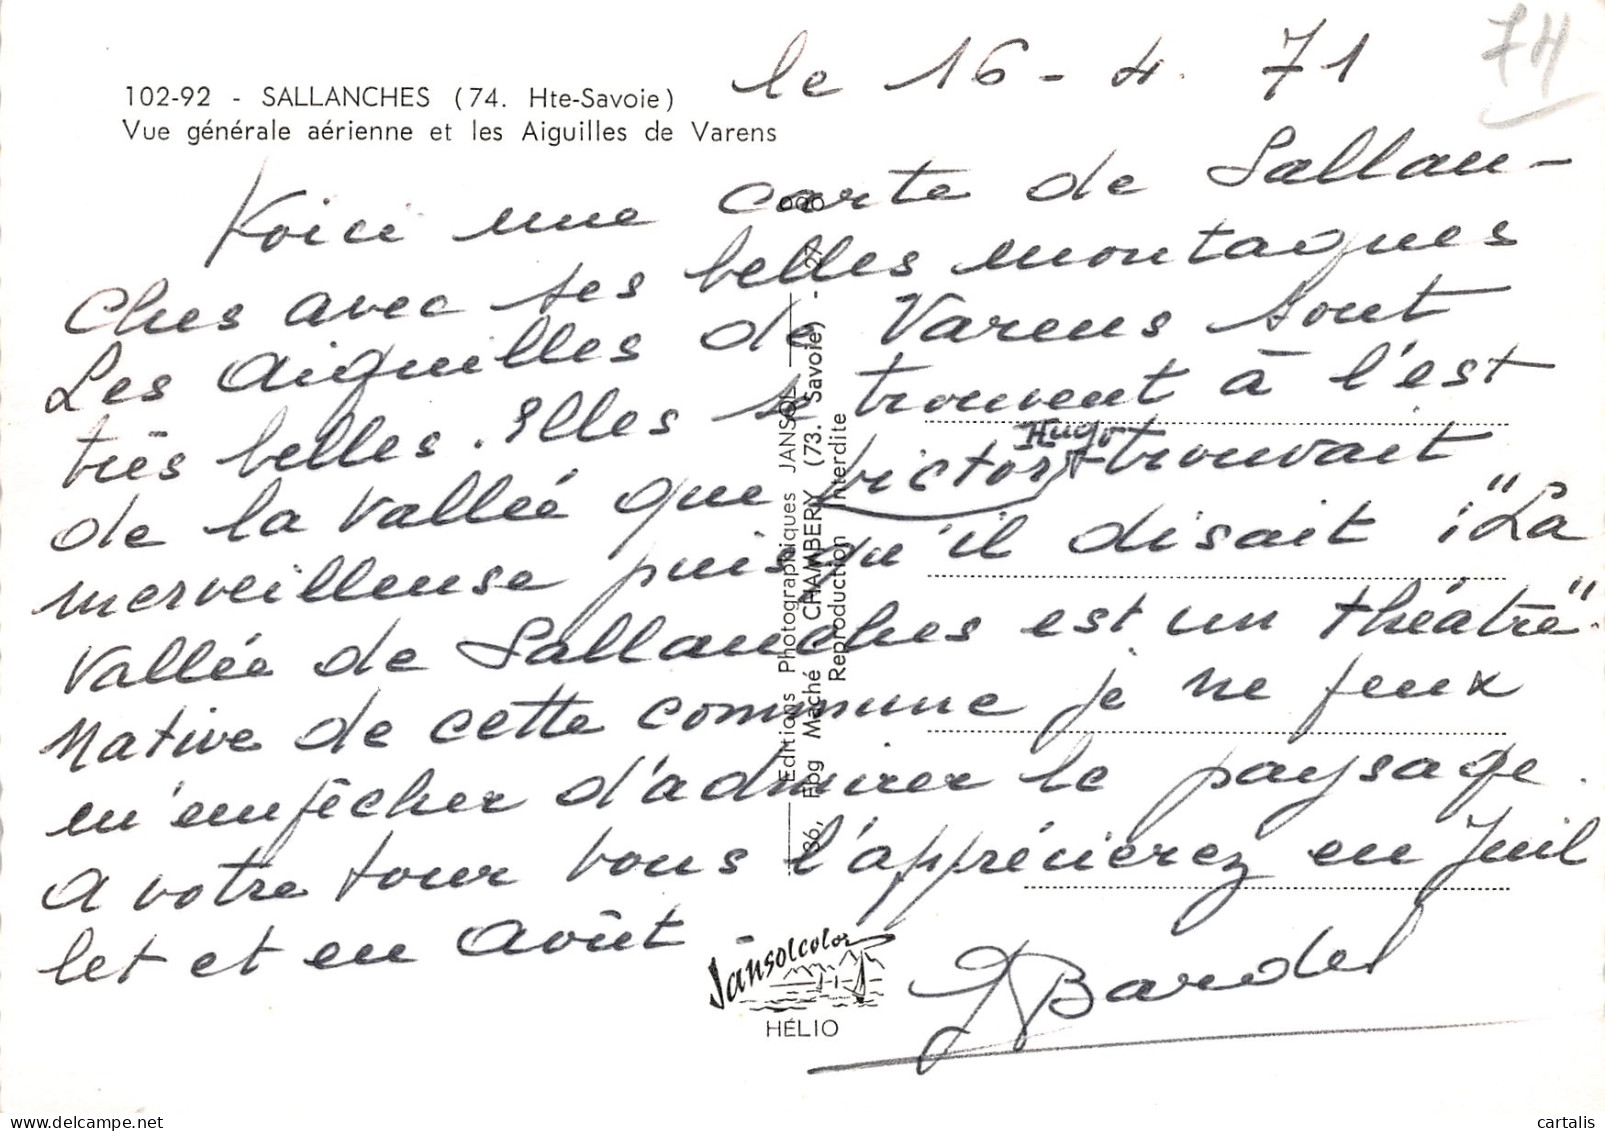 le 16-4.71
74
102-92 - SALLANCHES (74. Hte-Savoie)
Vue générale aérienne et les Aiguilles de Varens
Voici une carte de Sallan-
ches avec ses belles montagnes
Les aiguilles de Varens sont
très belles. Elles se trouvent à l'est
de la vallée que Victor Hugo trouvait
merveilleuse puisqu'il disait : "La
Vallée de Sallanches est un théâtre".
Native de cette commune je ne peux
m'empêcher d'admirer le paysage.
A votre tour vous l'apprécierez en Juil
let et en Août
Bardel
Editions Photographiques JANSOL
36, Fbg Maché CHAMBERY (73. Savoie) - 27
Reproduction Interdite
Jansolcolor
HÉLIO
delcampe.net
cartalis